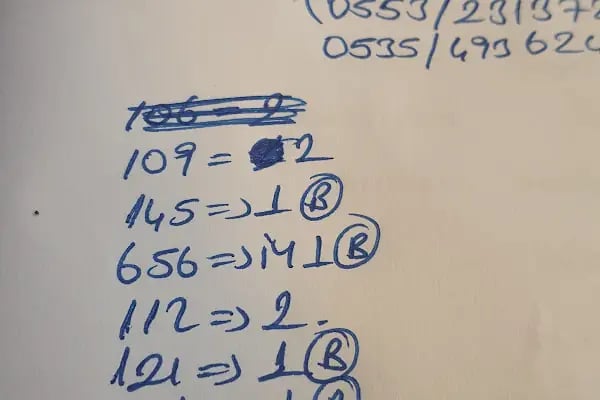 (0553/23137
0535/493 624
106 = 2
109 = 2
145 => 1 B
656 => 1 B
112 => 2.
121 => 1 B